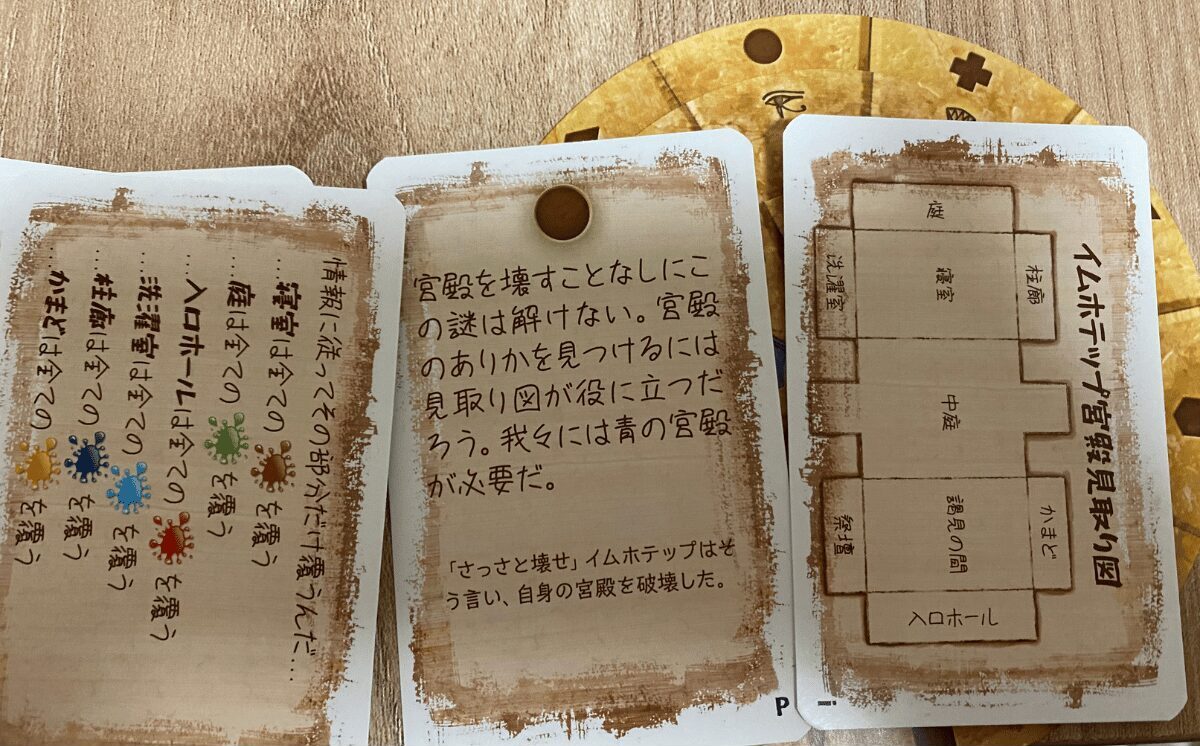 情報に従ってその部分だけ覆うんだ…
…寝室は全ての を覆う
…庭は全ての を覆う
…入口ホールは全ての を覆う
…洗濯室は全ての を覆う
…柱廊は全ての を覆う
…かまどは全ての を覆う
宮殿を壊すことなしにこ
の謎は解けない。宮殿
のありかを見つけるには
見取り図が役に立つだ
ろう。我々には青の宮殿
が必要だ。
「さっさと壊せ」イムホテップはそ
う言い、自身の宮殿を破壊した。
P
イムホテップ宮殿見取り図
庭
洗濯室
寝室
柱廊
中庭
祭壇
謁見の間
かまど
入口ホール
i